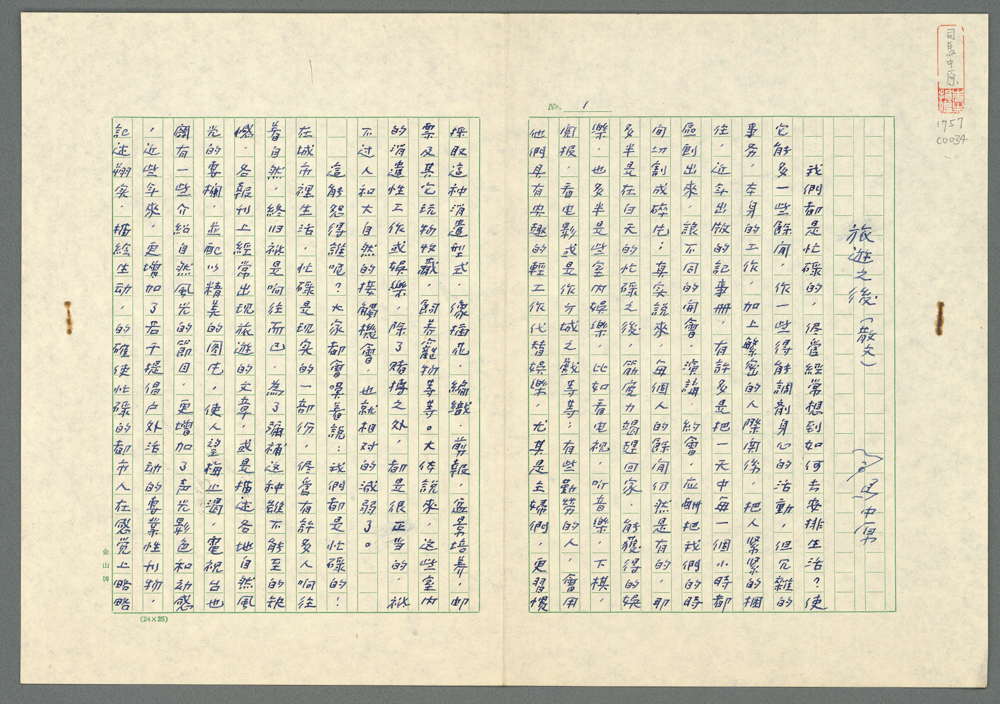 司馬中原
1757
C0034
No. 1
旅遊之後(散文)
司馬中原
我們都是忙碌的,儘管經常想到如何去安排生活?使
它能多一些餘閒,作一些得能調劑身心的活動,但冗雜的
事務,本身的工作,加上繁密的人際關係,把人緊緊的綑
住,近年出版的記事冊,有許多是把一天中每一個小時都
區劃出來,說不同的開會,演講,約會,應酬把我們的時
間切割成碎片;真實說來,每個人的餘閒仍然是有的,那
多半是在白天的忙碌之後,筋疲力竭趕回家,能獲得的娛
樂,也多半是些室內娛樂,比如看電視,听音樂,下棋,
閱报,看电影或是作方城之戲等等;有些勤勞的人,會用
他們具有興趣的輕工作代替娛樂,尤其是主婦們,更習慣
採取這种消遣型式,像插花,編織,剪報,盆景培养,郵
票及其它玩物收藏,飼养寵物等等。大体說來,这些室内
的消遣性工作或娛樂,除了賭博之外,都是很正当的,祇
不过人和大自然的接觸機會,也就相对的減弱了。
這能怨得誰呢?大家都會嘆着說:我們都是忙碌的!
在城市裡生活,忙碌是現实的一部份,儘管有許多人响往
着自然,終归祇是响往而已,為了彌補这种雖不能至的缺
憾,各報刊上經常出現旅遊的文章,或是描述各地自然風
光的專欄,並配以精美的圖片,使人望梅止渴,電視台也
闢有一些介紹自然風光的節目,更增加了声光影色和动感
,近些年來,更增加了若干提倡户外活动的專業性刊物,
記述翔实,描繪生动,的確使忙碌的都市人在感觉上略略
金山牌
(24×25)